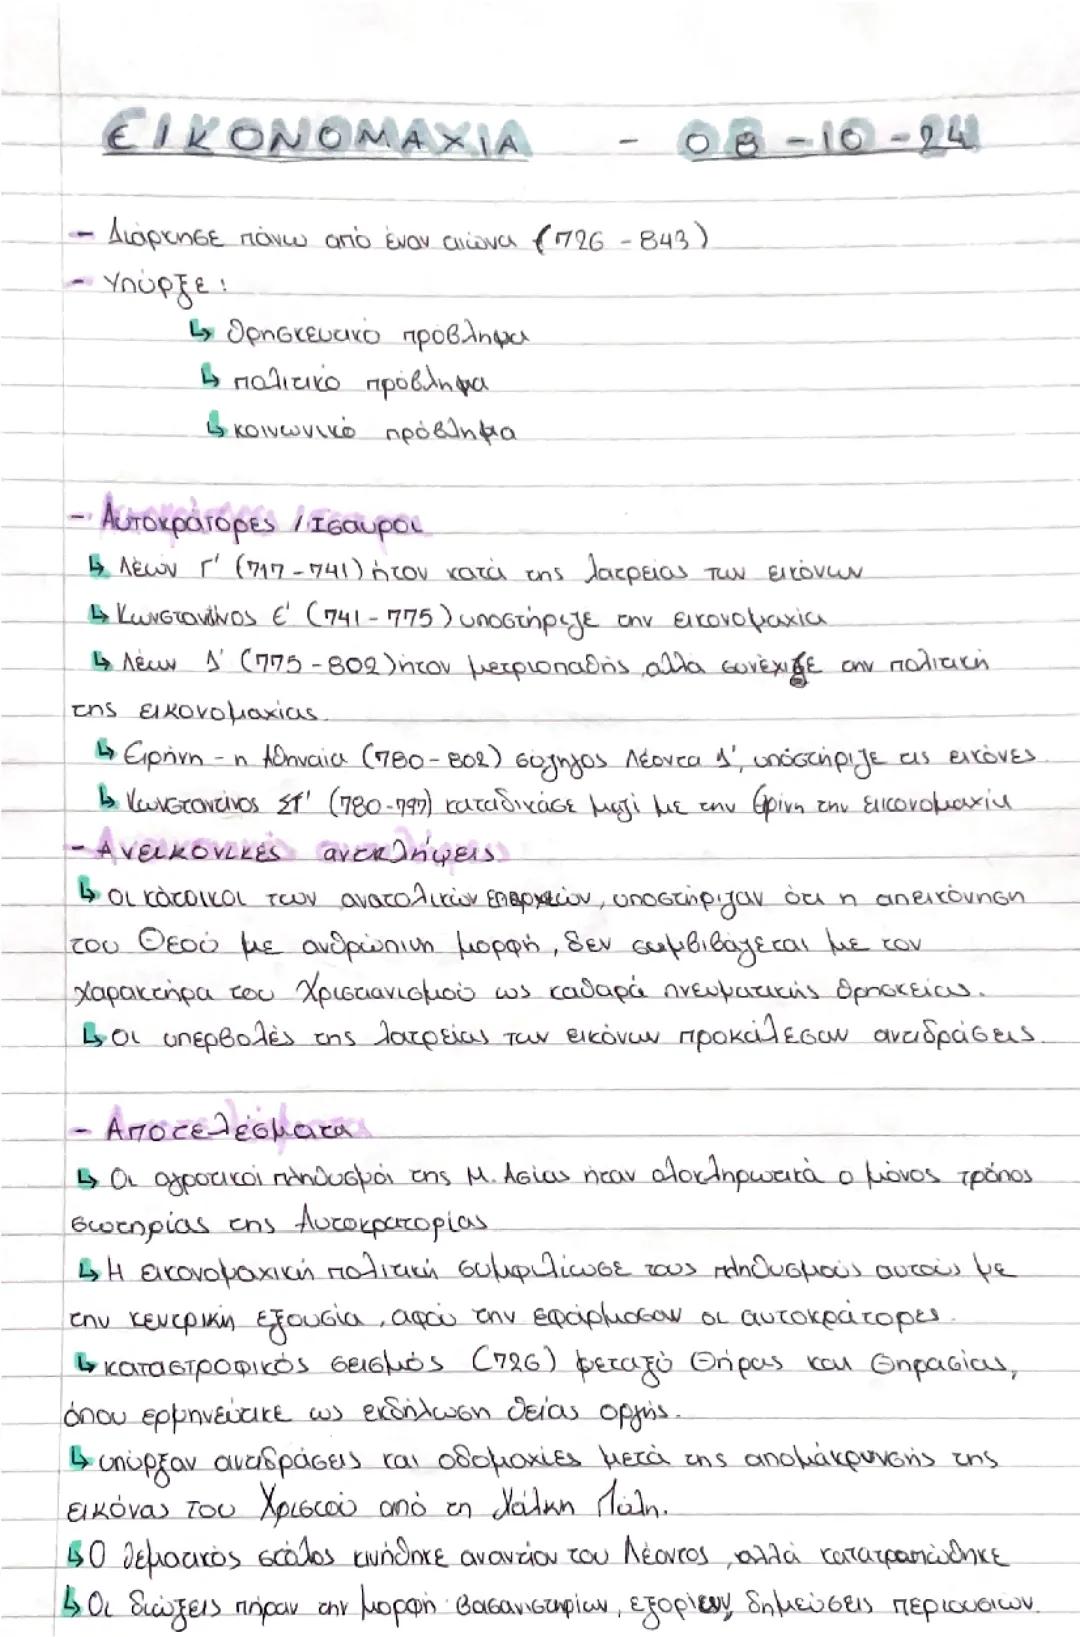 ΕΙΚΟΝΟΜΑΧΙΑ - 08-10-24
- Διάρκησε πάνω από έναν αιώνα (726 - 843)
- Υπύρξε:
↳ θρησκευτικό πρόβλημα
↳ πολιτικό πρόβλημα
↳ κοινωνικό πρόβλημα
- Αυτοκράτορες / Ισαυροι
↳ Λέων Γ' (717 - 741) ήταν κατά της λατρείας των εικόνων
↳ Κωνσταντίνος Ε' (741 - 775) υποστήριζε την εικονομαχία
↳ Λέων Δ' (775 - 802) ήταν μετριοπαθής, αλλά συνέχιζε την πολιτική
της εικονομαχίας.
↳ Ειρήνη - η Αθηναία (780 - 802) σύζηγος Λέοντα Δ', υπόστήριζε τις εικόνες.
↳ Κωνσταντίνος ΣΤ' (780-797) καταδικάσε μαζί με την Ερίνη την Εικονομαχία
- Ανεικονικές αντιλήψεις
↳ οι κάτοικοι των ανατολικών επαρχειών, υποστήριζαν ότι η απεικόνηση
του Θεού με ανθρώπινη μορφή, δεν συμβιβάζεται με τον
χαρακτήρα του Χριστιανισμού ως καθαρά πνευματικής θρησκείας.
↳ Οι υπερβολές της λατρείας των εικόνων προκάλεσαν αντιδράσεις.
- Αποτελέσματα
↳ Οι αγροτικοί πληθυσμοί της Μ. Ασίας ήταν ολοκληρωτικά ο μόνος τρόπος
σωτηρίας της Αυτοκρατορίας
↳ Η εικονομαχική πολιτική συμφιλίωσε τους πληθυσμούς αυτούς με
την κεντρική εξουσία, αφού την εφάρμοσαν οι αυτοκράτορες.
↳ καταστροφικός σεισμός (726) μεταξύ Θήρας και Θηρασίας,
όπου ερμηνεύτικε ως εκδήλωση θείας οργής.
↳ υπύρξαν αντιδράσεις και οδομαχίες μετά της απομάκρυνσής της
εικόνας του Χριστού από τη Χάλκη Πύλη.
↳ Ο θεματικός στόλος κινήθηκε εναντίον του Λέοντος, αλλά κατατροπώθηκε
↳ Οι διώξεις πήραν την μορφή βασανιστηρίων, εξοριών, δημεύσεις περιουσιών.